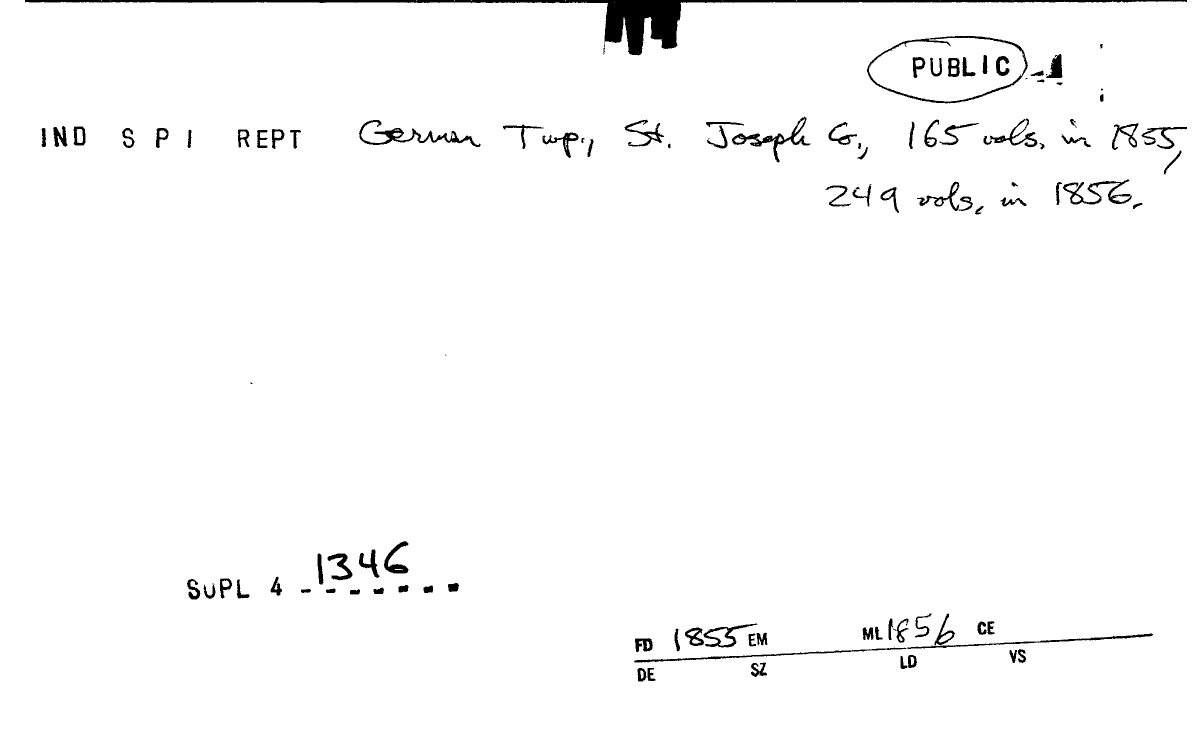 PUBLIC
IND S P I REPT German Twp., St. Joseph Co., 165 vols. in 1855,
249 vols. in 1856.
SUPL 4 1346
FD 1855 EM ML 1856 CE
DE SZ LD VS